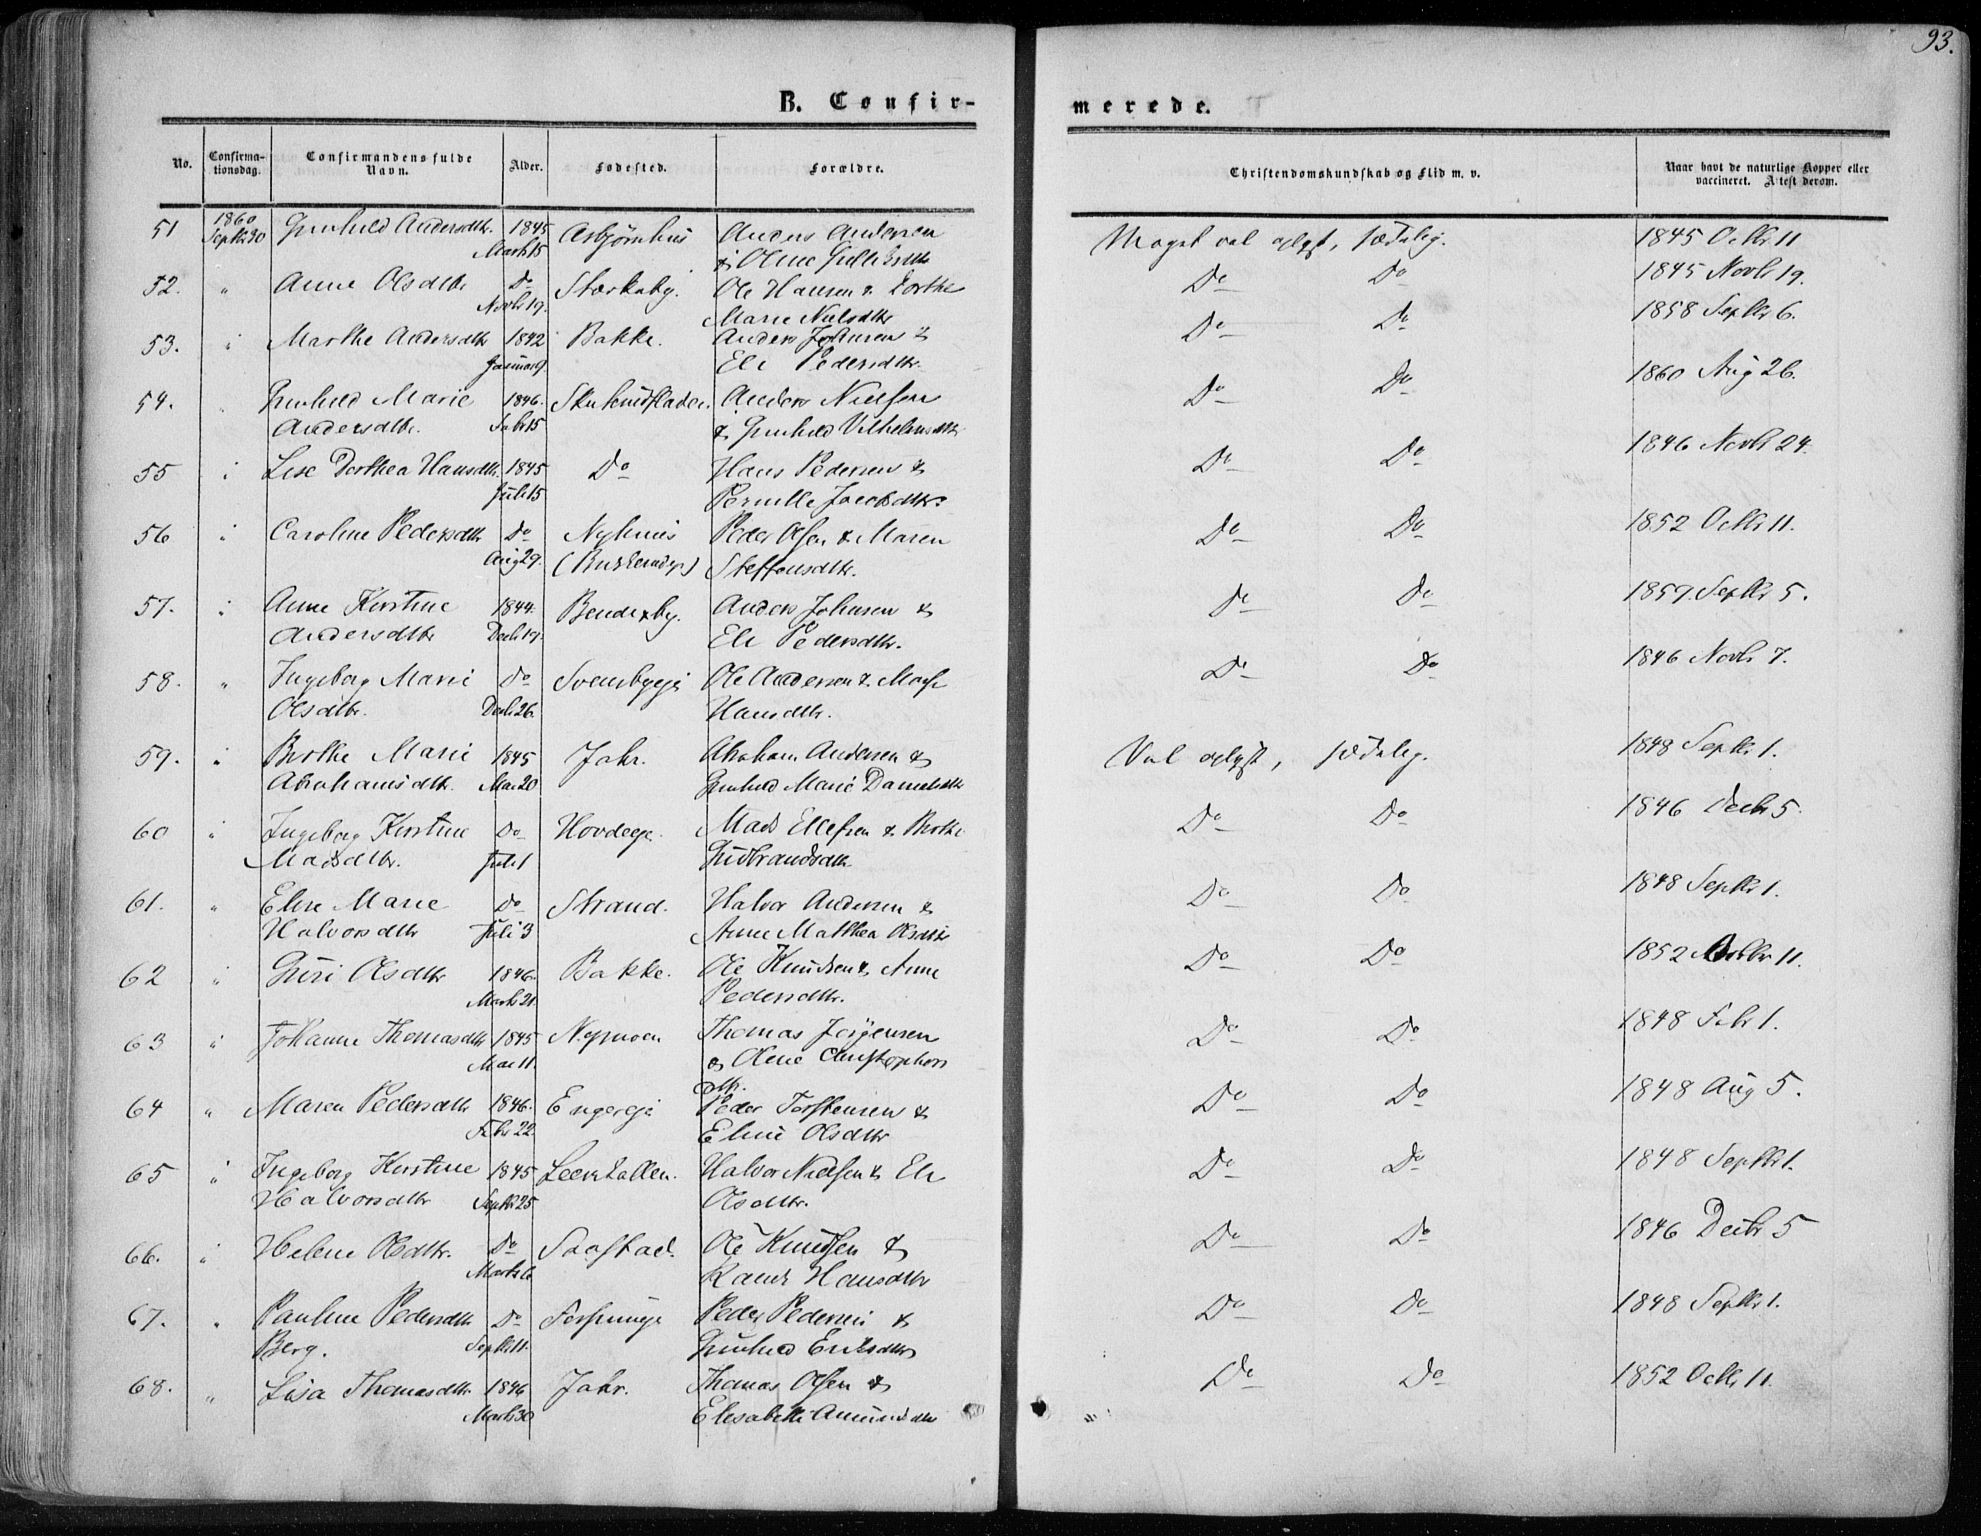 93.
B. Confir-
merede.
No.
Confirma-
tionsdag.
Confirmandens fulde
Navn.
Alder.
Fødested.
Forældre.
Christendomskundskab og Flid m. v.
Naar havt de naturlige Kopper eller
vaccineret. Attest derom.
51 1860 Septbr 30 Gunhild Andersdtr. 1845 Marts 15 Asbjørnhus Anders Andersen
& Oline Gulliksdtr Meget vel oplyst, sædelig. 1845 Octbr 11
52. " Anne Olsdtr Do Novbr 19. Størkeby. Ole Hansen & Dorthe
Marie Nielsdtr Do Do 1845 Novbr 19.
53. " Marthe Andersdtr 1842 Januar 9. Bakke. Anders Johnsen &
Eli Pedersdtr. Do Do 1858 Septbr 6.
54. " Gunhild Marie 1846. Anders Nielsen
Andersdtr. Febr 15 & Gunhild Vilhelmsdtr Do Do 1860 Aug 26.
55 " Lise Dorthea Hansdtr 1845 Juli 15 Do Hans Pedersen &
Pernille Jacobsdtr Do Do 1846 Novbr 24.
56 " Caroline Pedersdtr Do Aug 29. Nyhuus Peder Olsen & Maren
Steffensdtr. Do Do 1852 Octbr 11.
57. " Anne Kirstine 1844. Bendixby. Anders Johnsen &
Andersdtr Decbr 19. Eli Pedersdtr. Do Do 1859 Septbr 5.
58. " Ingeborg Marie Do Svensbyeje Ole Andersen &
Olsdtr. Decbr 26. Hansdtr. Do Do 1846 Novbr 7.
59. " Berthe Marie 1845 Jahr. Abraham Andersen &
Abrahamsdtr. Mai 20 Gunhild Marie Danielsdtr Vel oplyst, sædelig. 1848 Septbr 1.
60 " Ingeborg Kirstine Do Hovdeeje. Mads Ellefsen & Berthe
Madsdtr. Juli 1 Gudbrandsdtr Do Do 1846 Decbr 5.
61. " Eline Marie Do Strand. Halvor Andersen &
Halvorsdtr Juli 3 Anne Mathea Olsdtr Do Do 1848 Septbr 1.
62 " Guri Olsdtr 1846. Marts 21. Bakke. Ole Knudsen & Anne
Pedersdtr. Do Do 1852 Octbr 11.
63 " Johanne Thomasdtr 1845 Mai 11. Nymoen Thomas Jørgensen
& Oline Christophers
dtr. Do Do 1848 Febr 1.
64 " Maren Pedersdtr 1846. Febr 22. Engereje Peder Torstensen &
Eline Olsdtr Do Do 1848 Aug 5.
65 " Ingeborg Kirstine 1845 Halvor Nielsen & Eli
Halvorsdtr Septbr 25 Olsdtr. Do Do 1848 Septbr 1.
66. " Helene Olsdtr. Do Marts 6 Saastad. Ole Knudsen &
Randi Hansdtr Do Do 1846 Decbr 5
67. " Pauline Pedersdtr Do Peder Pedersen &
Berg. Septbr 11. Gunhild Eriksdtr Do Do 1848 Septbr 1.
68. " Lisa Thomasdtr 1846 Marts 30 Jahr. Thomas Olsen &
Elisabeth Amundsdtr Do Do 1852 Octbr 11.